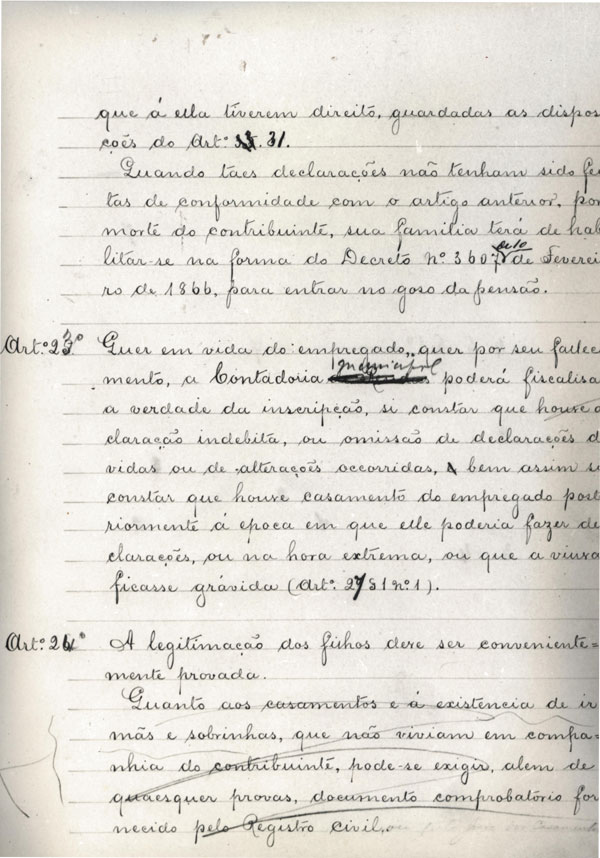 que á ella tiverem direito, guardadas as dispos
ções do Art.º 31.
Quando taes declarações não tenham sido fei
tas de conformidade com o artigo anterior, por
morte do contribuinte, sua familia terá de hab
litar-se na forma do Decreto nº 3607, de 10 de Feverei
ro de 1866, para entrar no goso da pensão.
Art.º 23º Quer em vida do empregado, quer por seu fallec
mento, a Contadoria municipal poderá fiscalisa
a verdade da inscripção, si constar que houve d
claração indebita, ou omissão de declarações d
vidas ou de alterações occorridas, bem assim s
constar que houve casamento do empregado post
riormente á epoca em que elle poderia fazer de
clarações, ou na hora extrema, ou que a viuva
ficasse grávida (Art.º 27 § 1 nº 1).
Art.º 24º A legitimação dos filhos deve ser conveniente=
mente provada.
Quanto aos casamentos e á existencia de ir
mãs e sobrinhas, que não viviam em compa=
nhia do contribuinte, pode-se exigir, alem de
quaesquer provas, documento comprobatório for
necido pelo Registro civil,